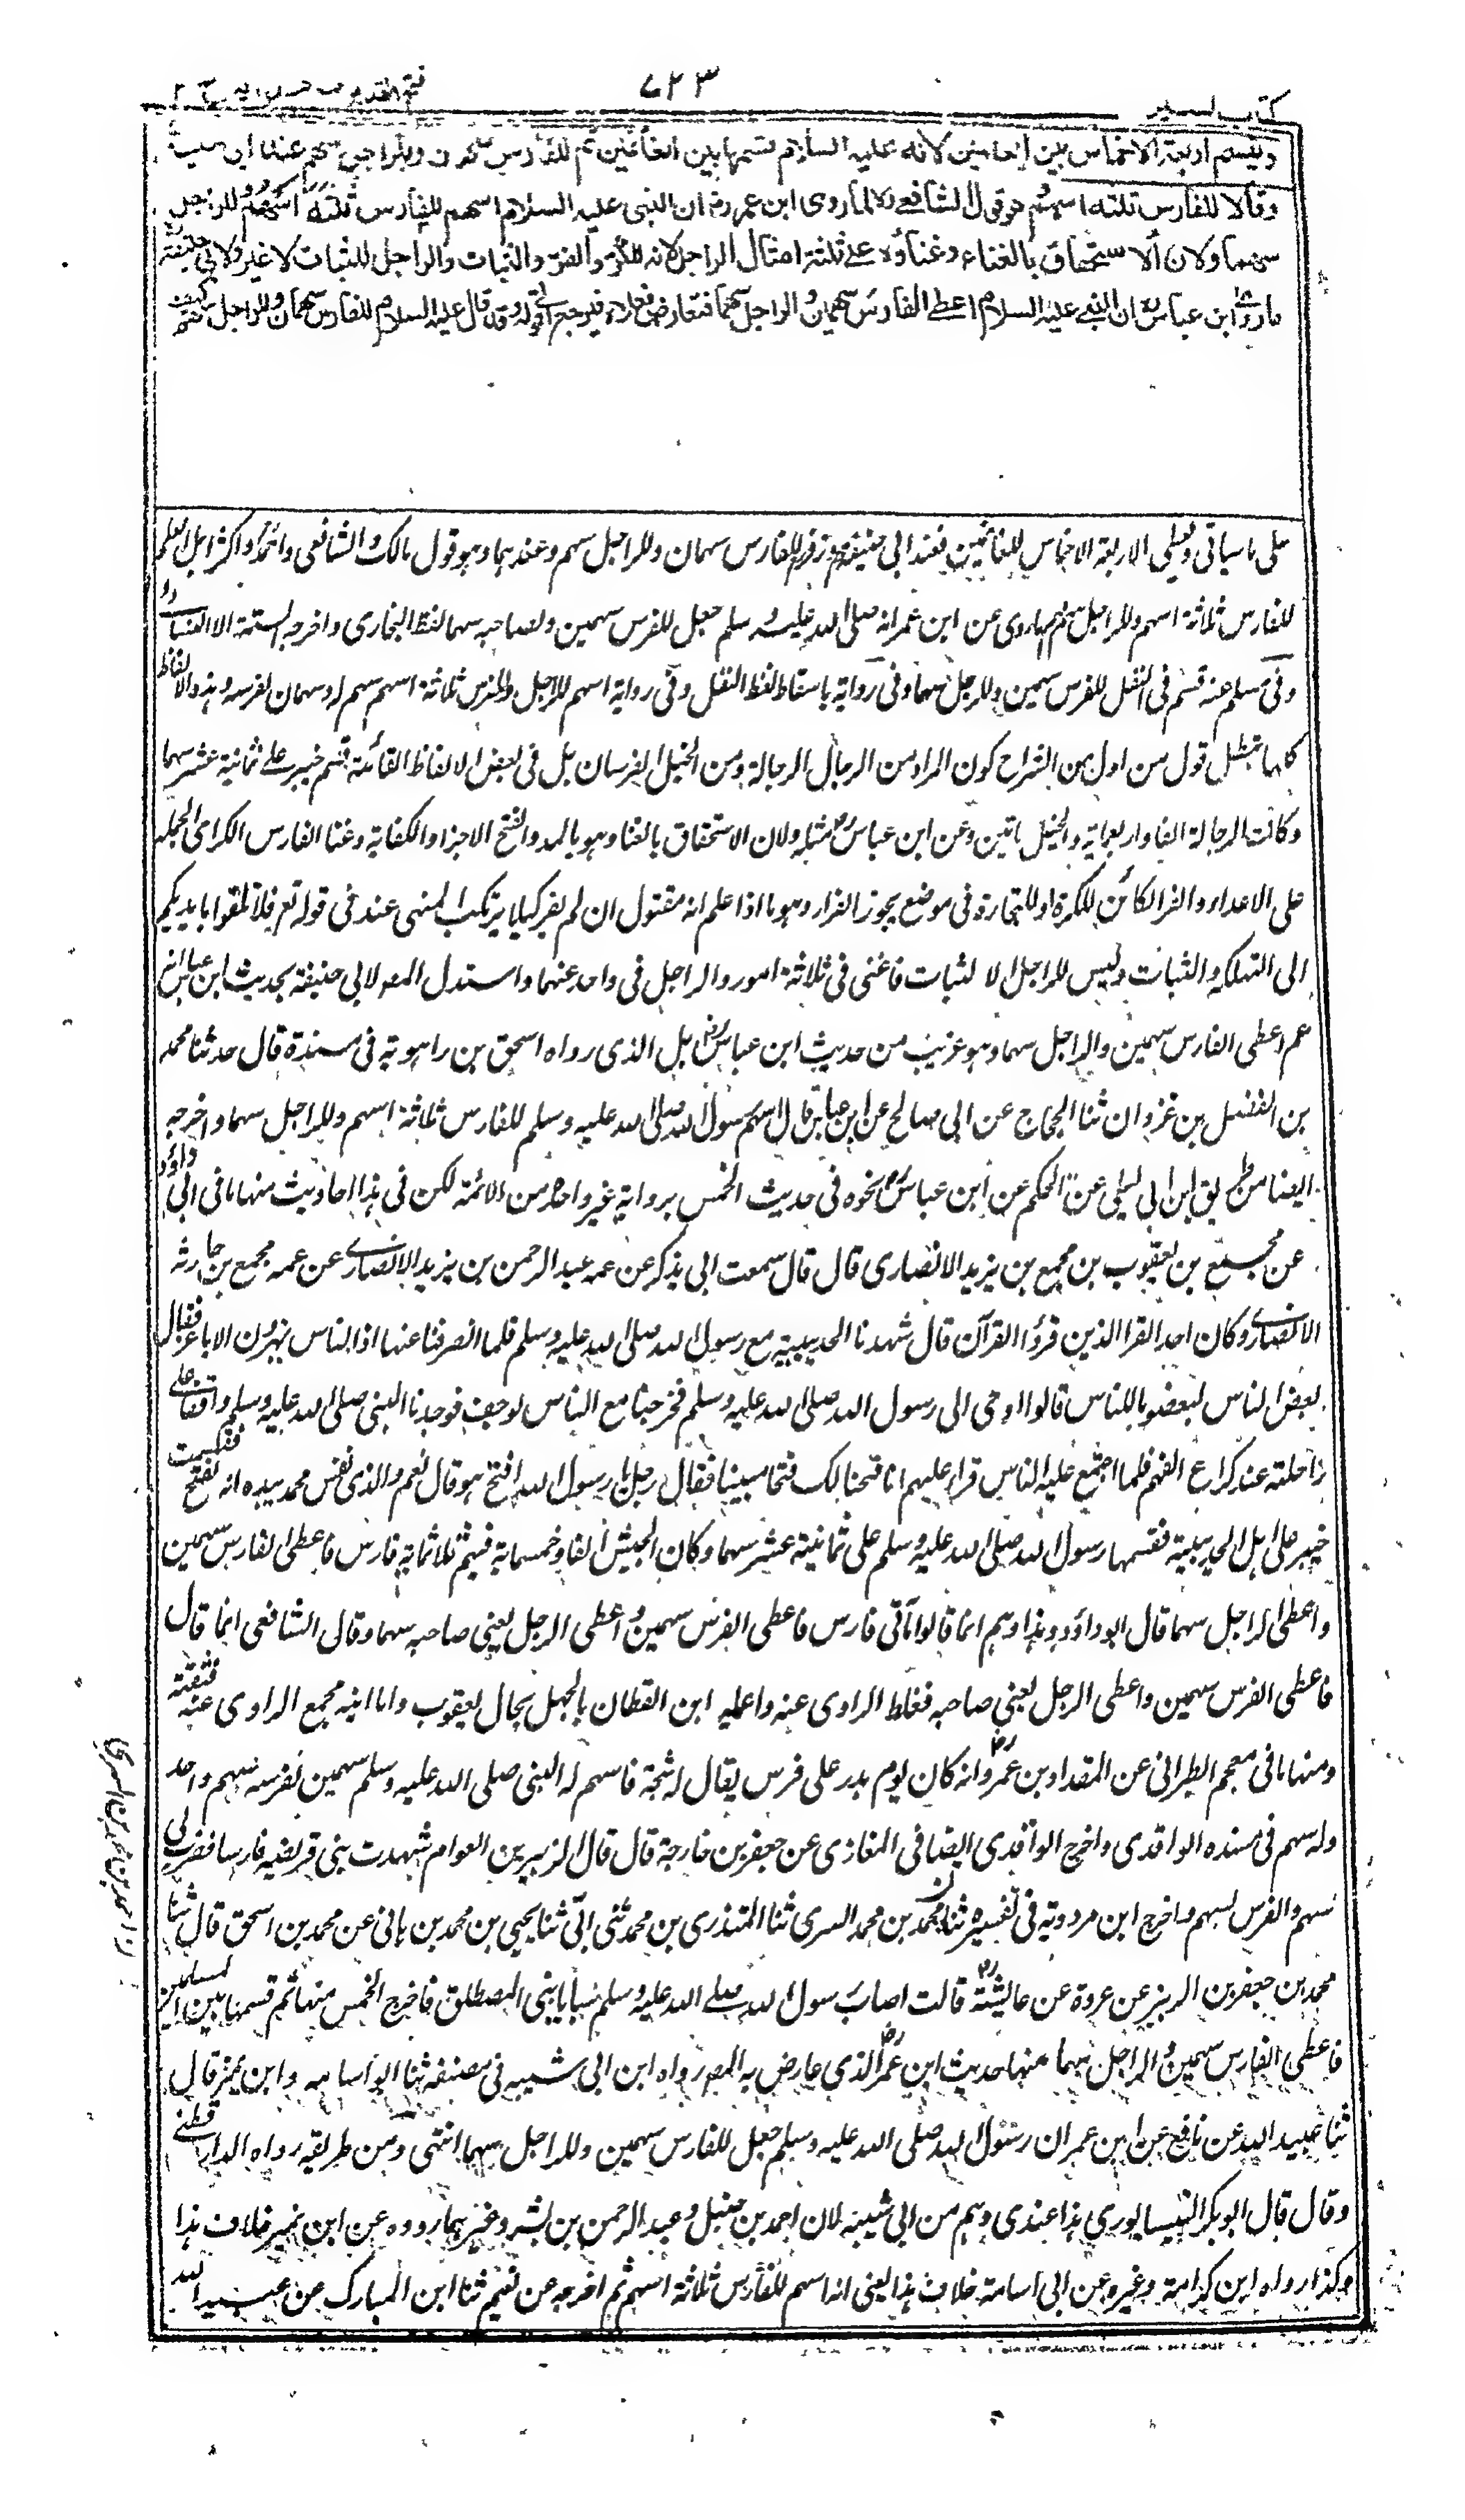 كتاب السير
٧٢٣
فتح القدير مع هدايه ج ٢
ويقسم اربعة الاخماس بين الغانمين لانه عليه السلام قسمها بين الغانمين ثم للفارس سهمان وللراجل سهم عند ابي حنيفة
وقالا للفارس ثلثة اسهم وهو قول الشافعي لما روى ابن عمر رض ان النبي عليه السلام اسهم للفارس ثلثة اسهم وللراجل
سهما ولان الاستحقاق بالغناء وغناؤه على ثلثة امثال الراجل لانه للكر والفر والثبات والراجل للثبات لا غير ولابي حنيفة
ما روى ابن عباس رض ان النبي عليه السلام اعطى الفارس سهمين والراجل سهما فتعارض فعلاه فيرجع الى قوله وقد قال عليه السلام للفارس سهمان وللراجل سهم
على ما سياتى ويعطى الاربعة الاخماس للغانمين فعند ابى حنيفة وزفر للفارس سهمان وللراجل سهم وعندهما وهو قول مالك والشافعى واحمد واكثر اهل العلم
للفارس ثلاثة اسهم وللراجل سهم لهما روى عن ابن عمر انه صلى الله عليه وسلم جعل للفرس سهمين ولصاحبه سهما لفظ البخارى واخرجه الستة الا النسائى
وفى مسلم عنه قسم فى النفل للفرس سهمين وللرجل سهما وفى رواية باسقاط لفظ النفل وفى رواية اسهم للرجل ولفرسه ثلاثة اسهم سهم له وسهمان لفرسه وهذه الالفاظ
كلها تبطل قول من اول من الشراح كون المراد من الرجال الرجالة ومن الخيل الفرسان بل فى بعض الالفاظ القائلة قسم خيبر على ثمانية عشر سهما
وكانت الرجالة الفا واربعمائة والخيل مائتين وعن ابن عباس رض مثله ولان الاستحقاق بالغنا وهو بالمد والفتح الاجزاء والكفاية وغنا الفارس الكر اى الحملة
على الاعداء والفر الكائن للكرة او للتجارة فى موضع يجوز الفرار وهو ما اذا علم انه مقتول ان لم يفر كيلا يرتكب المنهى عنه فى قوله تع فلا تلقوا بايديكم
الى التهلكه والثبات وليس للراجل الا الثبات فاغنى فى ثلاثة امور والراجل فى واحد منها واستدل المص لابى حنيفة بحديث ابن عباس انه
عم اعطى الفارس سهمين والراجل سهما وهو غريب من حديث ابن عباس رض بل الذى رواه اسحق بن راهويه فى مسنده قال حدثنا محمد
بن الفضيل بن غزوان ثنا الحجاج عن ابى صالح عن ابن عباس قال اسهم رسول الله صلى الله عليه وسلم للفارس ثلاثة اسهم وللراجل سهما واخرجه
ايضا من طريق ابن ابى ليلى عن الحكم عن ابن عباس رض نحوه فى حديث الخمس برواية غير واحد من الائمة لكن فى هذا احاديث منها ما فى ابى داؤد
عن مجمع بن يعقوب بن مجمع بن يزيد الانصارى قال قال سمعت ابى يذكر عن عمه عبد الرحمن بن يزيد الانصارى عن عمه مجمع بن جارية
الانصارى وكان احد القرا الذين قرؤا القرآن قال شهدنا الحديبية مع رسول الله صلى الله عليه وسلم فلما انصرفنا عنها اذا الناس يهزون الاباعر فقال
بعض الناس لبعض ما للناس قالوا اوحى الى رسول الله صلى الله عليه وسلم فخرجنا مع الناس نوجف فوجدنا النبى صلى الله عليه وسلم واقفا على
راحلته عند كراع الغميم فلما اجتمع عليه الناس قرا عليهم انا فتحنا لك فتحا مبينا فقال رجل يا رسول الله افتح هو قال نعم والذى نفس محمد بيده انه لفتح فقسمت
خيبر على اهل الحديبية فقسمها رسول الله صلى الله عليه وسلم على ثمانية عشر سهما وكان الجيش الفا وخمسمائة فيهم ثلاثمائة فارس فاعطى الفارس سهمين
واعطى الراجل سهما قال ابو داؤد وهذا وهم انما قالوا مأتى فارس فاعطى الفرس سهمين واعطى الرجل يعنى صاحبه سهما وقال الشافعى انما قال
فاعطى الفرس سهمين واعطى الرجل يعنى صاحبه فغلط الراوى عنه واعله ابن القطان بالجهل بحال يعقوب واما ابنه مجمع الراوى عنه فثقة
ومنها ما فى معجم الطبرانى عن المقداد بن عمرو انه كان يوم بدر على فرس يقال له سبحة فاسهم له النبى صلى الله عليه وسلم سهمين لفرسه سهم واحد
وله سهم فى سنده الواقدى واخرج الواقدى ايضا فى المغازى عن جعفر بن خارجة قال قال الزبير بن العوام شهدت بنى قريظه فارسا فضرب لى
بسهم والفرس بسهم واخرج ابن مردويه فى تفسيره ثنا احمد بن محمد السرى ثنا المنذرى بن محمد ثنى ابى ثنا يحيى بن محمد بن هانى عن محمد بن اسحق قال ثنا
محمد بن جعفر بن الزبير عن عروة عن عائشة رض قالت اصاب رسول الله صلى الله عليه وسلم سبايا بنى المصطلق فاخرج الخمس منها ثم قسمها بين المسلمين
فاعطى الفارس سهمين والراجل سهما منها حديث ابن عمر رض الذى عارض به المص رواه ابن ابى شيبه فى مصنفه ثنا ابو اسامه وابن نمير قال
ثنا عبيد الله عن نافع عن ابن عمر ان رسول الله صلى الله عليه وسلم جعل للفارس سهمين وللراجل سهما انتهى ومن طريقه رواه الدارقطنى
وقال قال ابو بكر النيسابورى هذا عندى وهم من ابى شيبه لان احمد بن حنبل وعبد الرحمن بن بشر وغيرهما رووه عن ابن نمير خلاف هذا
وكذا رواه ابن كرامة وغيره عن ابى اسامة خلاف هذا يعنى انه اسهم للفارس ثلاثة اسهم ثم اخرجه عن نعيم ثنا ابن المبارك عن عبيد الله
احمد بن محمد بن السرى